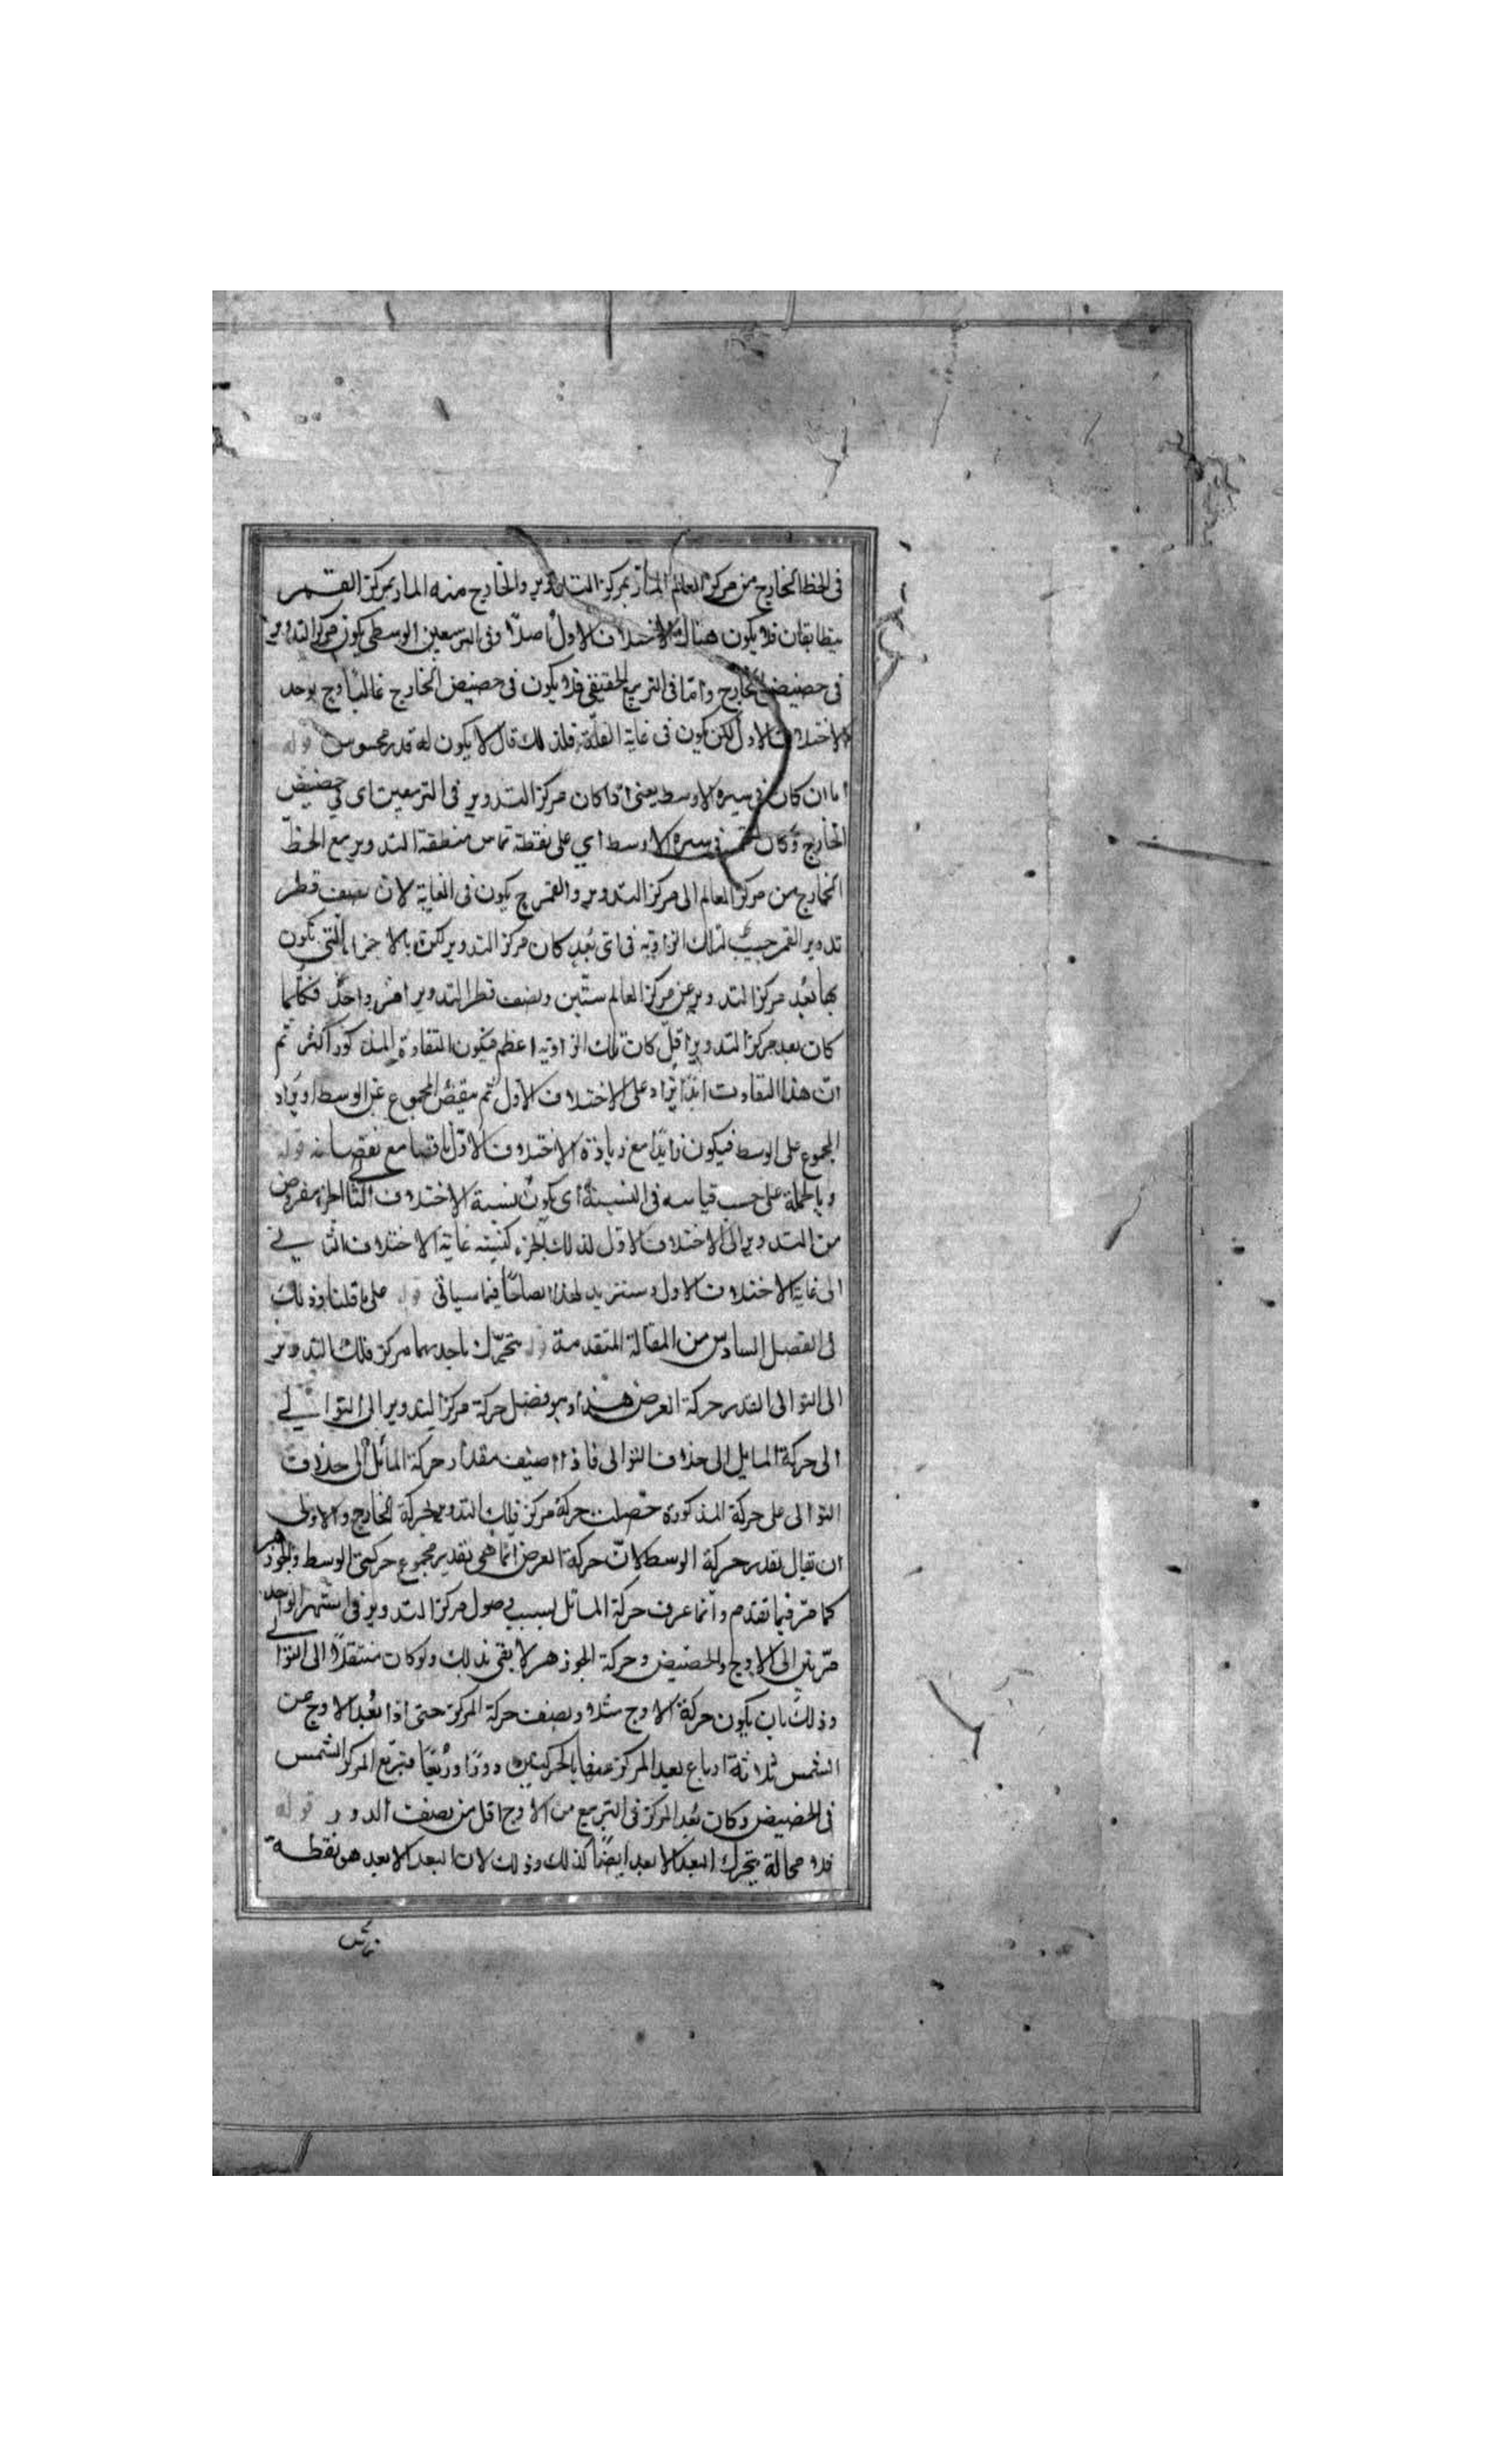 فى الخط الخارج من مركز العالم المارّ بمركز التدوير والخارج منه المار بمركز القمر
يتطابقان فلا يكون هناك الاختلاف الاول اصلا وفى التربيعين الوسطى يكون مركز التدوير
فى حضيض الخارج وامّا فى التربيع الحقيقى فلا يكون فى حضيض الخارج غالبا وح يوجد
الاختلاف الاول لكن يكون فى غاية القلّة فلذلك قال لا يكون له قدر محسوس قوله
اما ان كان فى سيره الاوسط يعنى اذا كان مركز التدوير فى التربيعين اى فى حضيض
الخارج وكان القمر فى سيره الاوسط اي على نقطة تماس منطقة التدوير مع الخطّ
الخارج من مركز العالم الى مركز التدوير والقمر ح يكون فى الغاية لان نصف قطر
تدوير القمر حبيب لتلك الزاوية فى اى بُعد كان مركز التدوير لكن بالاجزا التى تكون
بها بُعد مركز التدوير عن مركز العالم ستّين ونصف قطر التدوير واحدٌ فكلما
كان بعد مركز التدوير اقلّ كانت تلك الزاوية اعظم فيكون التفاوة المذكور اكثر ثم
انّ هذا التفاوت ابدًا يزاد على الاختلاف الاول ثم ينقص المجموع عن الوسط او يزاد
المجموع على الوسط فيكون زايدًا مع زيادة الاختلاف الاول ناقصا مع نقصانه قوله
وبالجملة على حسب قياسه فى النسبة اى يكون نسبة الاختلاف الثانى لجزء مفروض
من التدوير الى الاختلاف الاول لذلك الجزء كنسبة غاية الاختلاف الثانى
الى غاية الاختلاف الاول وسنزيد لهذا ايضاحًا فيما سياتى قوله على ما قلنا وذلك
فى الفصل السادس من المقالة المتقدمة قوله يتحرّك باحديهما مركز فلك التدوير
الى التوالى بقدر حركة العرض هذا وهو فضل حركة مركز التدوير الى التوالي
الى حركة المايل الى خلاف التوالى فاذا اضيف مقدار حركة المائل الى خلاف
التوالى على حركة المذكورة حصلت حركة مركز فلك التدوير بحركة الخارج والاولى
ان يقال بقدر حركة الوسط لانّ حركة العرض انّما هى بقدر مجموع حركتى الوسط والجوزهر
كما مرّ فيما تقدم وانما عرف حركة المائل بسبب وصول مركز التدوير فى الشهر الواحد
مرّتين الى الاوج والحضيض وحركة الجوزهر لا يفى بذلك ولو كان منتقلاً الى التوالى
وذلك بان يكون حركة الاوج مثلا ونصف حركة المركز حتى اذا بعُد الاوج عن
الشمس ثلاثة ارباع بعيد المركز عنها بالحركتين دورًا ورُبعًا فتربّع المركز الشمس
فى الحضيض وكان بُعد المركز فى التربيع من الاوج اقل من نصف الدور قوله
فلا محالة يتحرك البعد الابعد ايضًا كذلك وذلك لان البعد الابعد هو نقطة